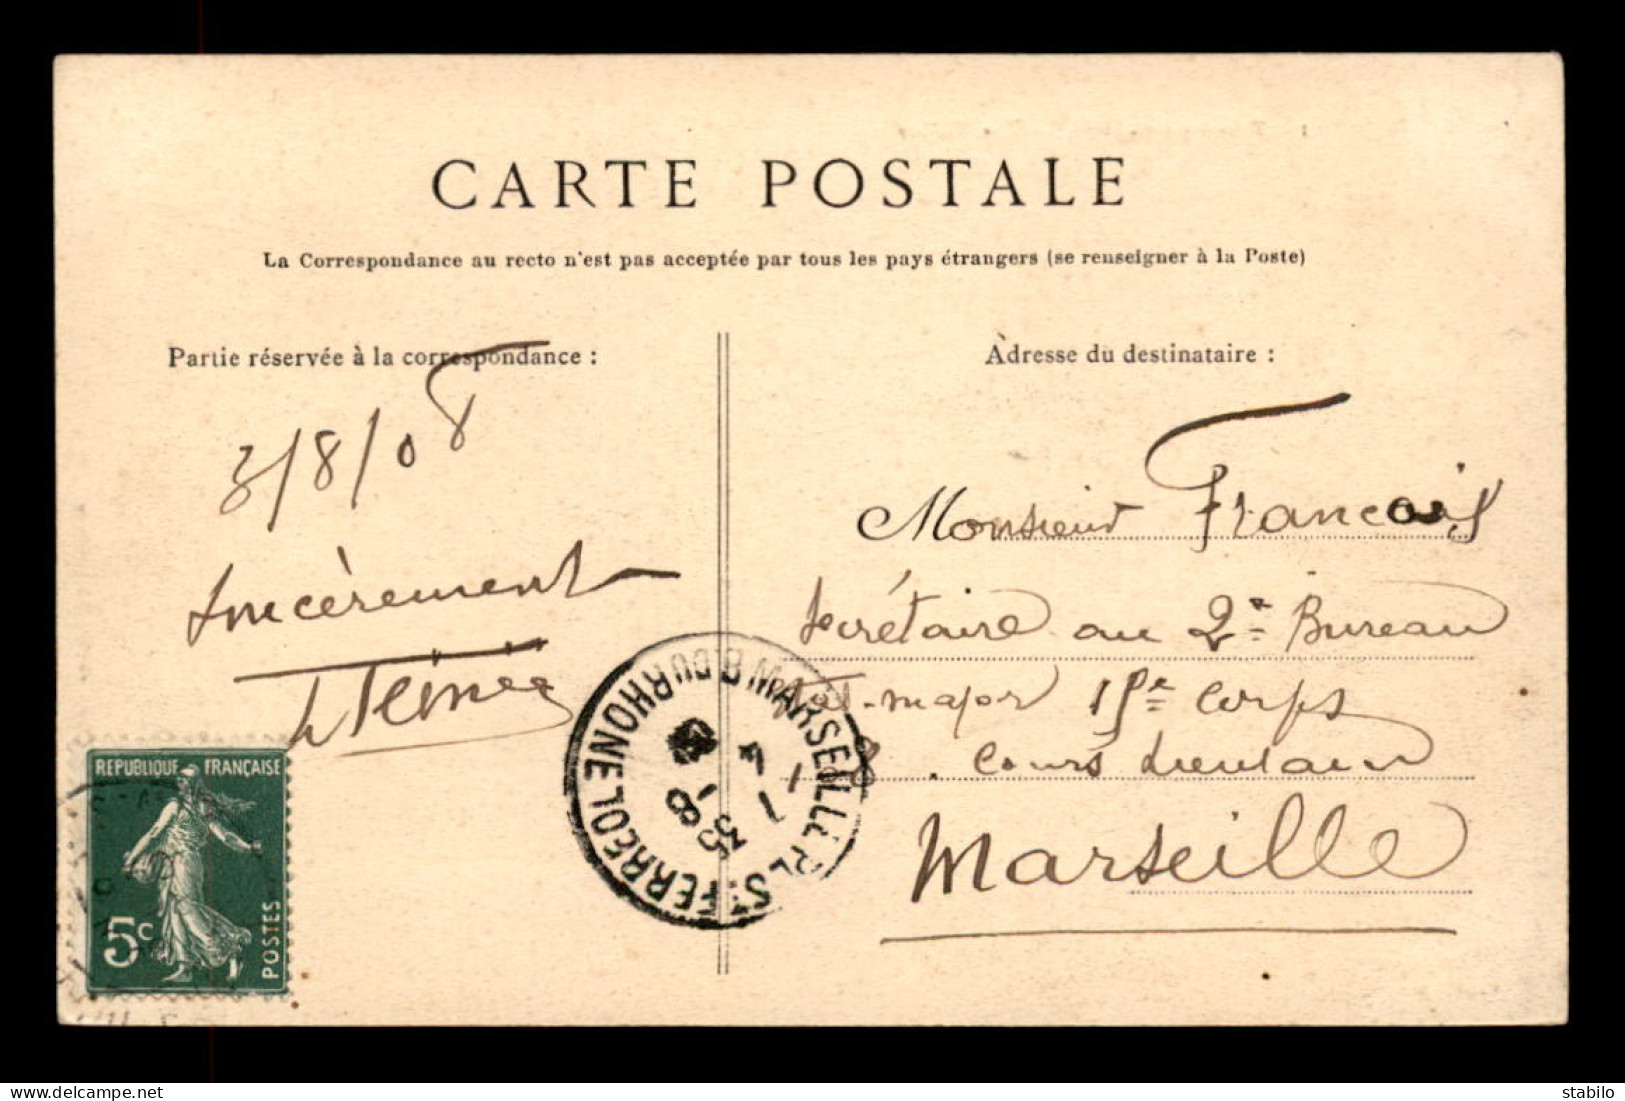 CARTE POSTALE
La Correspondance au recto n'est pas acceptée par tous les pays étrangers (se renseigner à la Poste)
Partie réservée à la correspondance :
3/8/08
Sincèrement
Adresse du destinataire :
Monsieur François
Secrétaire au 2e Bureau
major 15e Corps
Cours
Marseille
MARSEILLE PL. ST FERREOL B. DU RHONE
3 - 8
REPUBLIQUE FRANÇAISE
5c
POSTES
Delcampe.net
stabilo